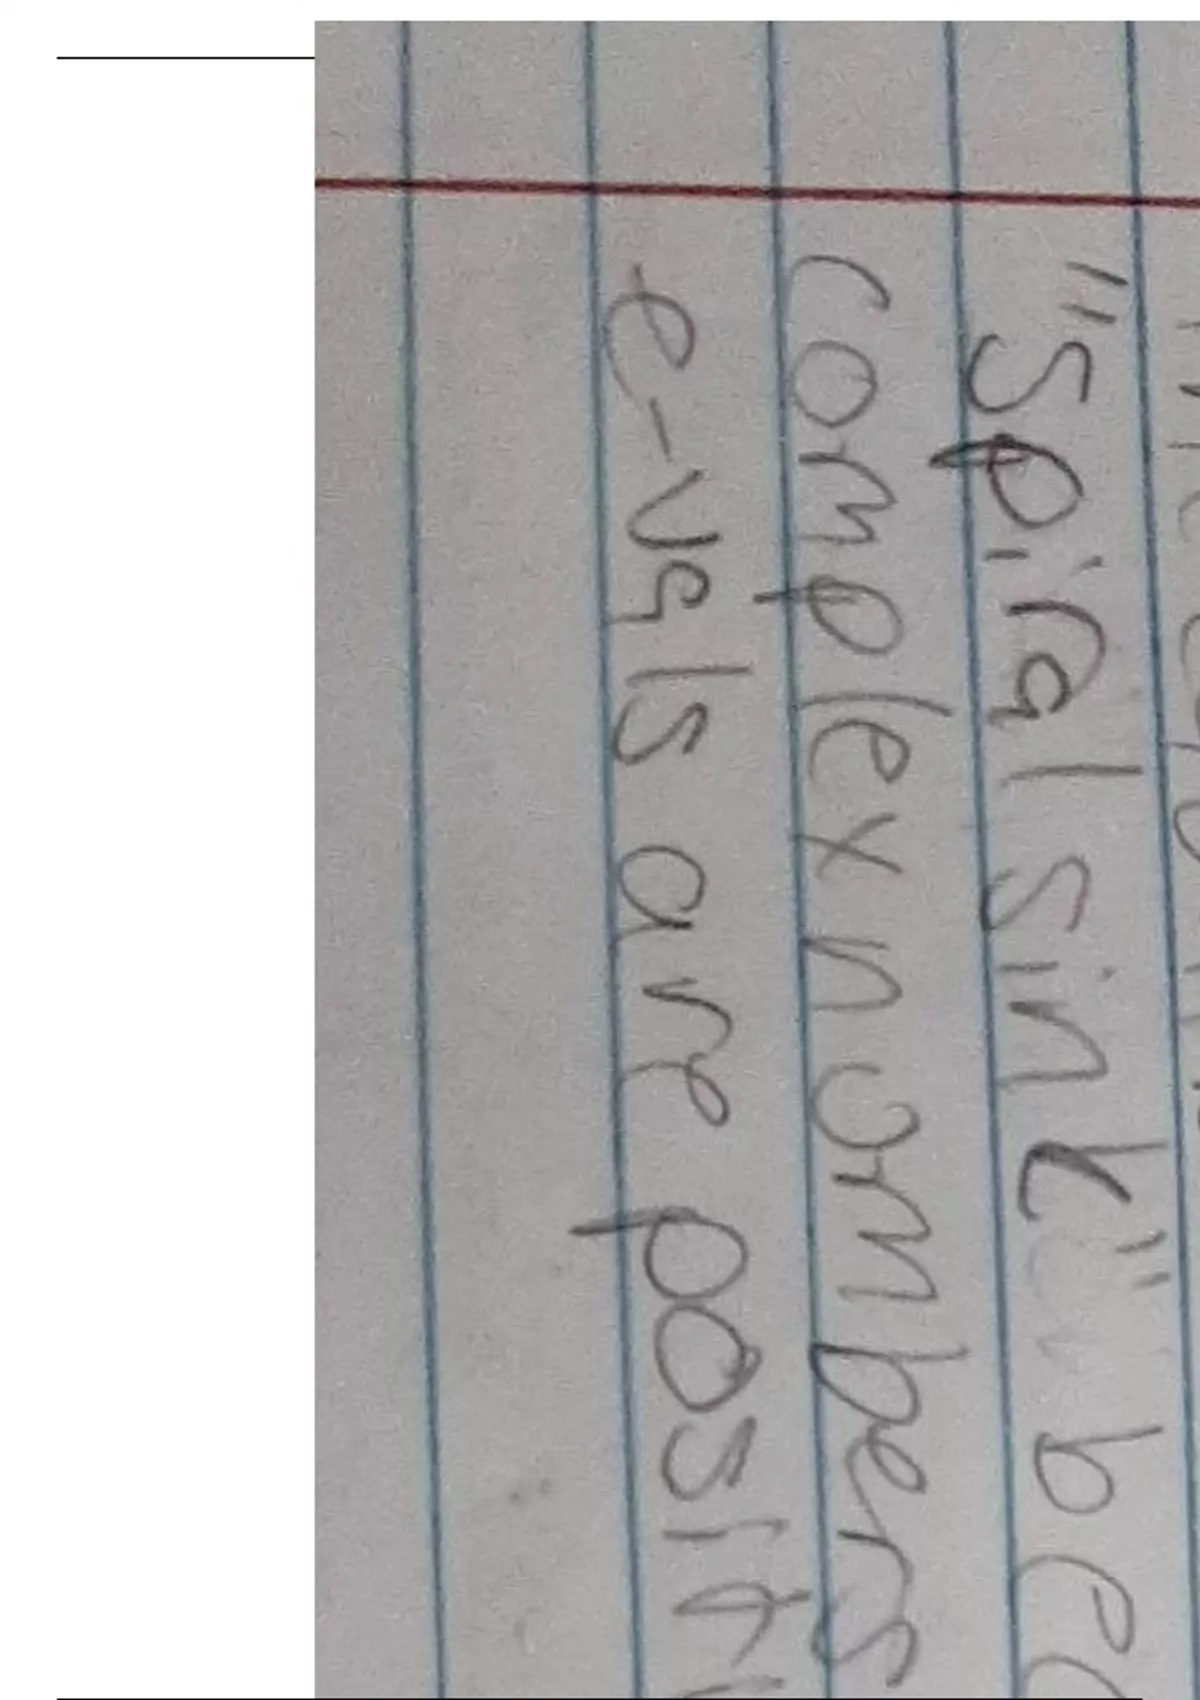 "Spiral sink" be
complex numbers
e-vals are posit